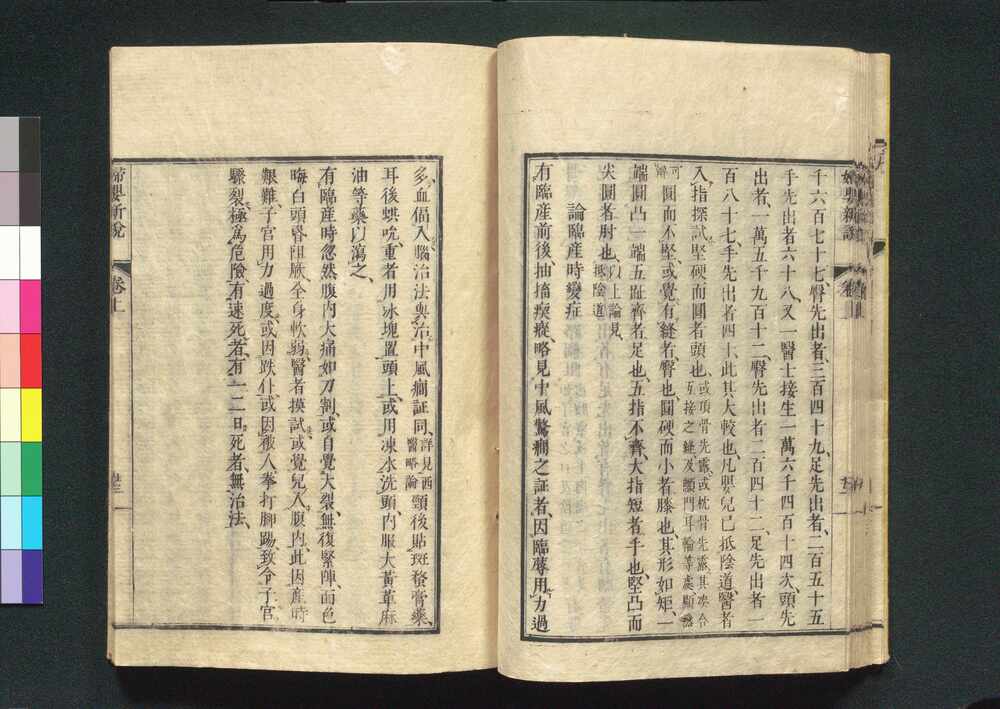 千六百七十七、臀先出者、三百四十九、足先出者、二百五十五
手先出者六十八、又一醫士接生一萬六千四百十四次、頭先
出者、一萬五千九百十二、臀先出者二百四十二、足先出者一
百八十七、手先出者四十、此其大較也、凡嬰兒已抵陰道、醫者
入指探試、堅硬而圓者頭也、或頂骨先露、或枕骨先露、其凑合互接之縫、及顖門耳輪等處、顯然
可辨圓而不堅、或覺有縫者、臀也、圓硬而小者膝也、其形如矩、一
端圓凸一端五趾齊者足也、五指不齊、大指短者手也、堅凸而
尖圓者肘也、以上論見抵陰道
論臨產時變症
有臨產前後、抽搐瘈瘲、略見中風驚癎之証者、因臨蓐用力過
多、血偪入腦、治法與治中風癎証同、詳見西醫略論頸後貼斑蝥膏藥、
耳後蜞吮、重者用冰塊置頭上、或用凍水洗頭、內服大黃萆麻
油等藥以瀉之、
有臨產時忽然腹內大痛如刀割、或自覺大裂、無復緊陣、面色
晦白、頭暈肢厥、全身軟弱、醫者摸試、或覺兒入腹內、此因產時
艱難、子宮用力過度、或因跌仆、或因被人拳打腳踢、致令子宮
驟裂、極為危險、有速死者、有一二日死者、無治法、
婦嬰新說
卷上